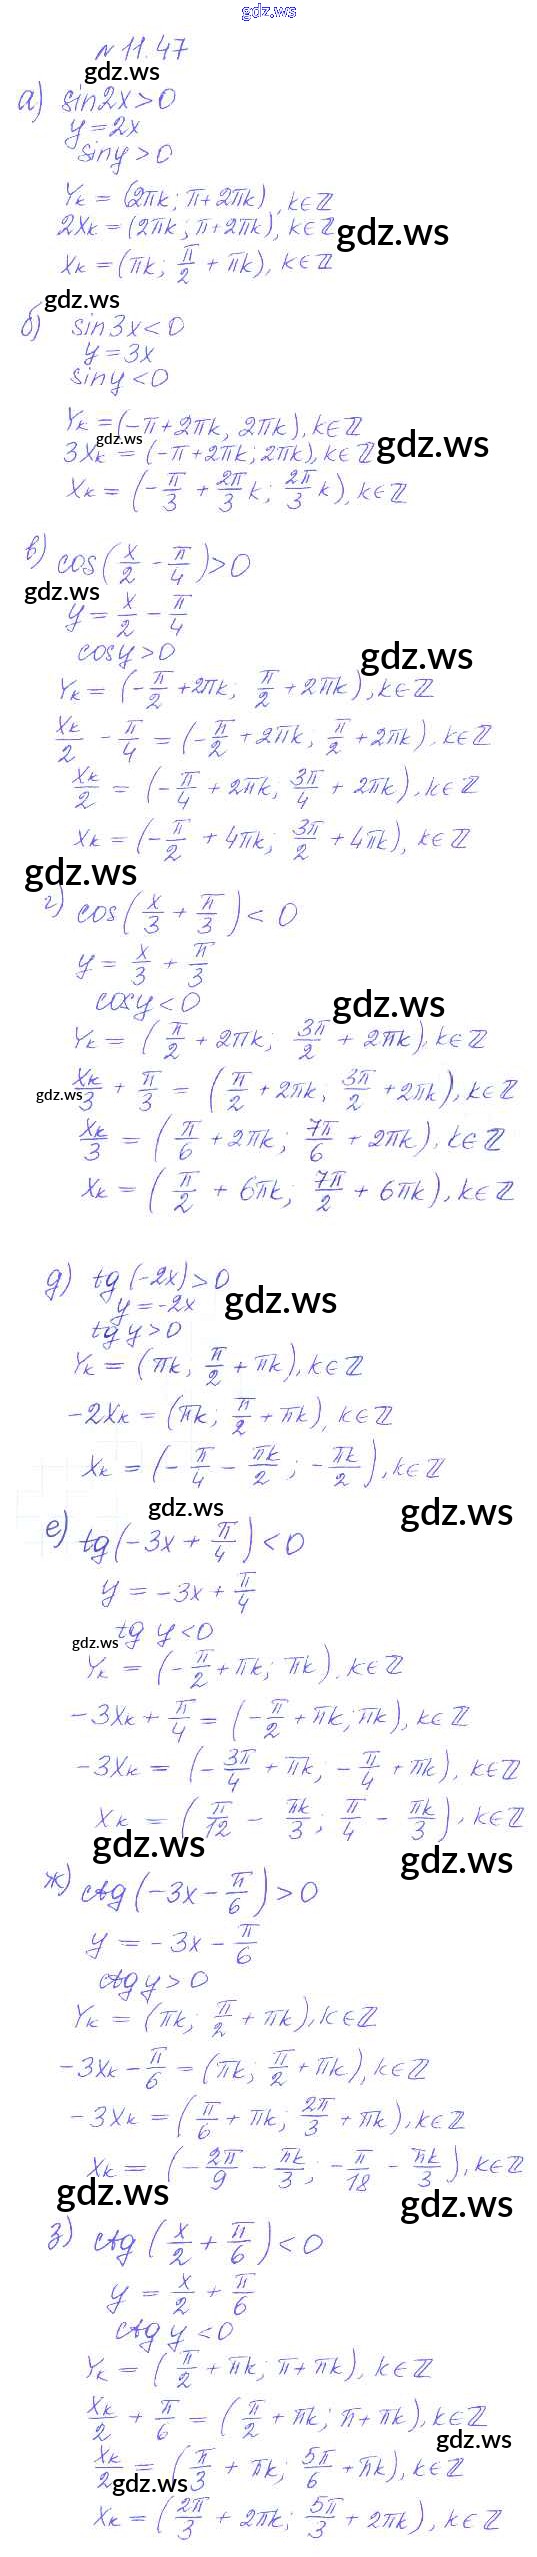 gdz.ws
N 11.47
gdz.ws
а) sin2x>0
y=2x
siny>0
Yk = (2πk; π+2πk), k∈ℤ
2Xk = (2πk; π+2πk), k∈ℤ
gdz.ws
Xk = (πk; π/2 + πk), k∈ℤ
gdz.ws
б) sin3x<0
y=3x
siny<0
Yk = (-π+2πk, 2πk), k∈ℤ
gdz.ws
3Xk = (-π+2πk; 2πk), k∈ℤ
gdz.ws
Xk = (-π/3 + 2π/3 k; 2π/3 k), k∈ℤ
в) cos(x/2 - π/4)>0
gdz.ws
y = x/2 - π/4
cosy>0
gdz.ws
Yk = (-π/2 +2πk; π/2 +2πk), k∈ℤ
Xk/2 - π/4 = (-π/2 + 2πk; π/2 +2πk), k∈ℤ
Xk/2 = (-π/4 + 2πk; 3π/4 + 2πk), k∈ℤ
Xk = (-π/2 + 4πk; 3π/2 + 4πk), k∈ℤ
gdz.ws
г) cos(x/3 + π/3) < 0
y = x/3 + π/3
cosy<0
gdz.ws
Yk = (π/2 + 2πk; 3π/2 + 2πk), k∈ℤ
gdz.ws
Xk/3 + π/3 = (π/2 +2πk; 3π/2 +2πk), k∈ℤ
Xk/3 = (π/6 + 2πk; 7π/6 + 2πk), k∈ℤ
Xk = (π/2 + 6πk; 7π/2 + 6πk), k∈ℤ
д) tg(-2x)>0
y=-2x
gdz.ws
tg y>0
Yk = (πk; π/2 + πk), k∈ℤ
-2Xk = (πk; π/2 + πk), k∈ℤ
Xk = (-π/4 - πk/2; -πk/2), k∈ℤ
gdz.ws
gdz.ws
е) tg(-3x + π/4) < 0
y = -3x + π/4
tg y<0
gdz.ws
Yk = (-π/2 +πk; πk), k∈ℤ
-3Xk + π/4 = (-π/2 + πk; πk), k∈ℤ
-3Xk = (-3π/4 + πk; -π/4 + πk), k∈ℤ
Xk = (π/12 - πk/3; π/4 - πk/3), k∈ℤ
gdz.ws
gdz.ws
ж) ctg(-3x - π/6) > 0
y = -3x - π/6
ctg y > 0
Yk = (πk; π/2 + πk), k∈ℤ
-3Xk - π/6 = (πk; π/2 + πk), k∈ℤ
-3Xk = (π/6 + πk; 2π/3 + πk), k∈ℤ
Xk = (-2π/9 - πk/3; -π/18 - πk/3), k∈ℤ
gdz.ws
gdz.ws
з) ctg(x/2 + π/6) < 0
y = x/2 + π/6
ctg y < 0
Yk = (π/2 + πk; π+πk), k∈ℤ
Xk/2 + π/6 = (π/2 + πk; π+πk), k∈ℤ
gdz.ws
Xk/2 = (π/3 + πk; 5π/6 + πk), k∈ℤ
gdz.ws
Xk = (2π/3 + 2πk; 5π/3 + 2πk), k∈ℤ